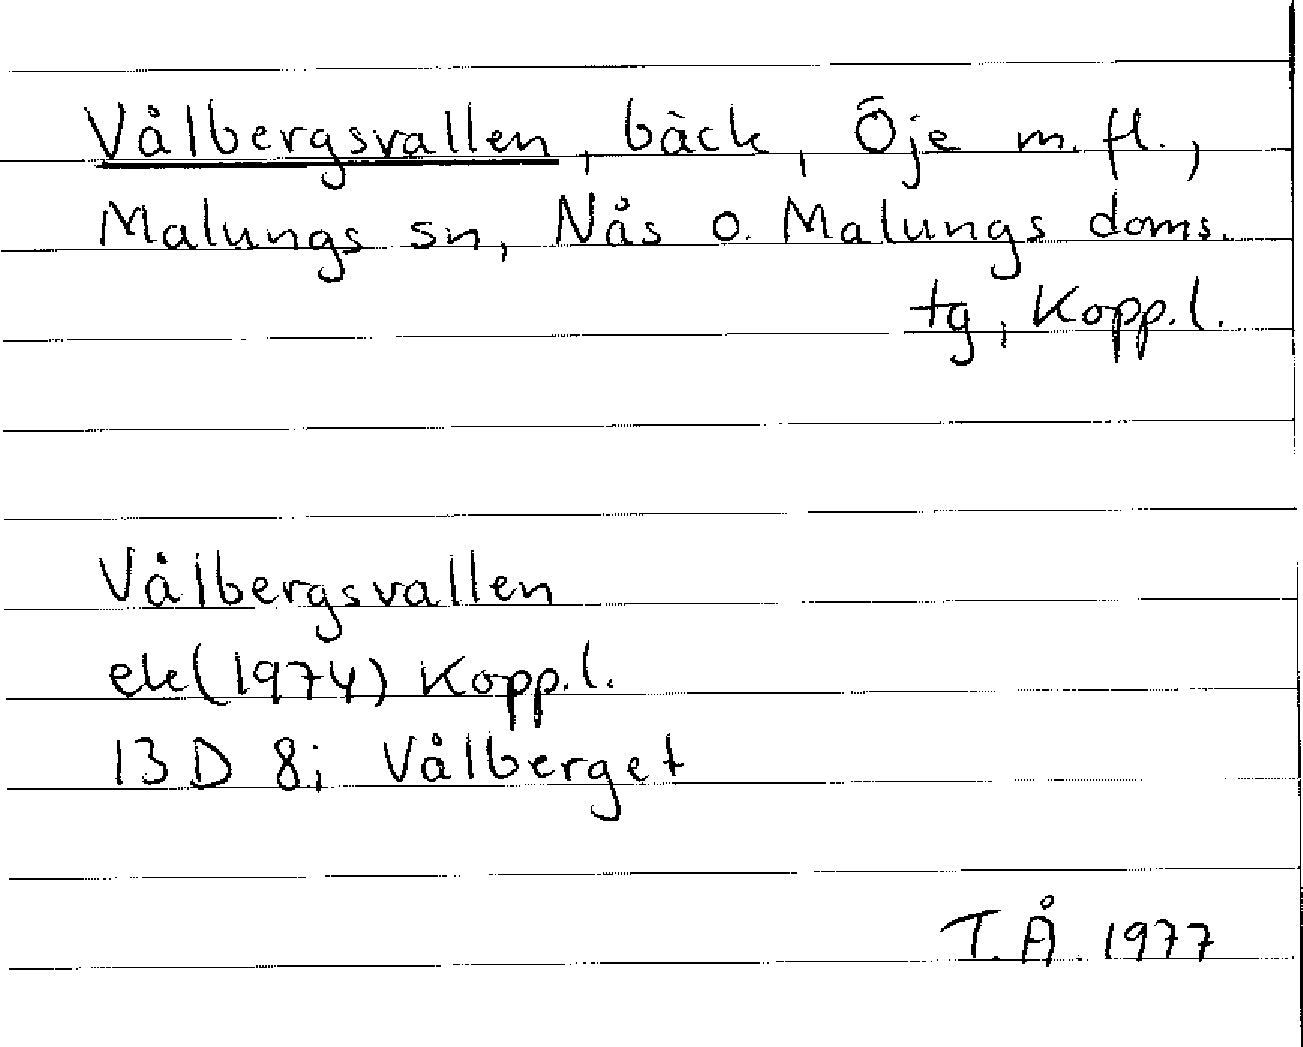 Vålbergsvallen, bäck, Öje m.fl.,
Malungs sn, Nås o. Malungs doms.
tg, Kopp.l.
Vålbergsvallen
ek(1974) Kopp.l.
13D 8i Vålberget
T.Å. 1977